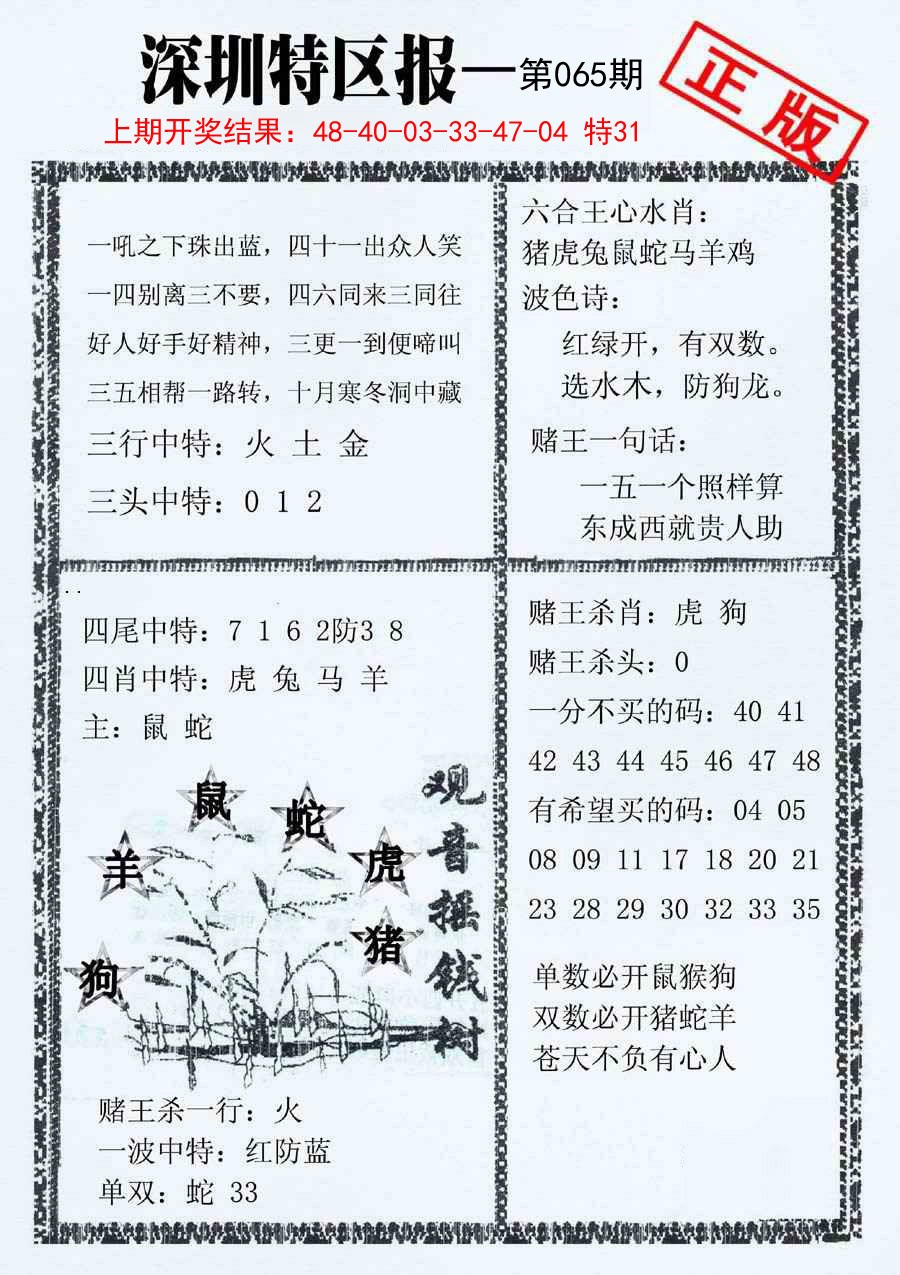 深圳特区报—第065期
正版
上期开奖结果：48-40-03-33-47-04 特31
一吼之下珠出蓝，四十一出众人笑
一四别离三不要，四六同来三同往
好人好手好精神，三更一到便啼叫
三五相帮一路转，十月寒冬洞中藏
三行中特：火 土 金
三头中特：0 1 2
六合王心水肖：
猪虎兔鼠蛇马羊鸡
波色诗：
红绿开，有双数。
选水木，防狗龙。
赌王一句话：
一五一个照样算
东成西就贵人助
四尾中特：7 1 6 2防3 8
四肖中特：虎 兔 马 羊
主：鼠 蛇
鼠
蛇
羊
虎
猪
狗
观音摇钱树
赌王杀一行：火
一波中特：红防蓝
单双：蛇 33
赌王杀肖：虎 狗
赌王杀头：0
一分不买的码：40 41
42 43 44 45 46 47 48
有希望买的码：04 05
08 09 11 17 18 20 21
23 28 29 30 32 33 35
单数必开鼠猴狗
双数必开猪蛇羊
苍天不负有心人